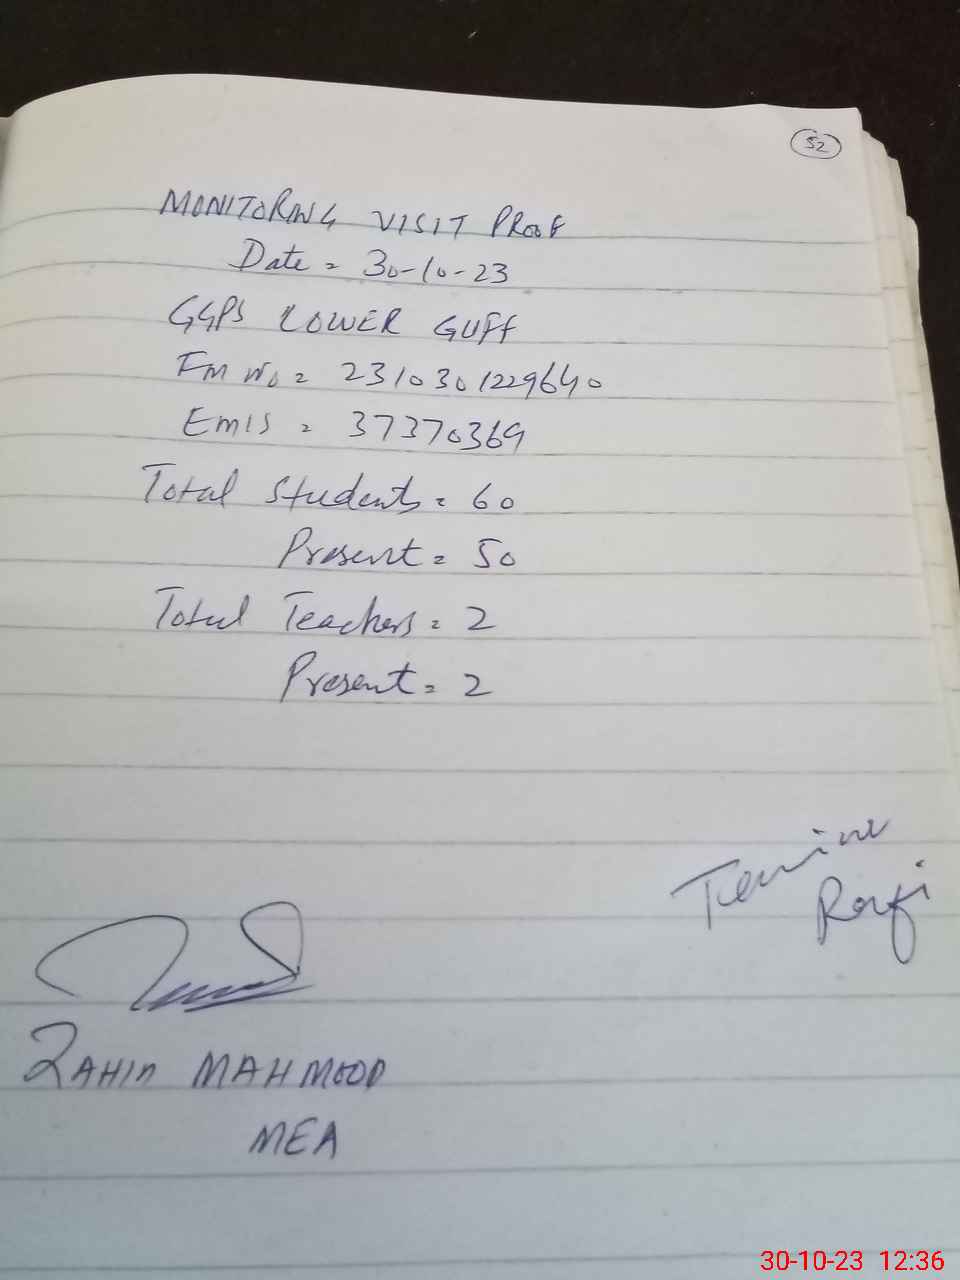 52
MONITORING VISIT PROOF
Date = 30-10-23
GGPS LOWER GUFF
Fm No = 2310301229640
Emis = 37370369
Total Students = 60
Present = 50
Total Teachers = 2
Present = 2
Rafi
MAHMOOD
MEA
30-10-23 12:36